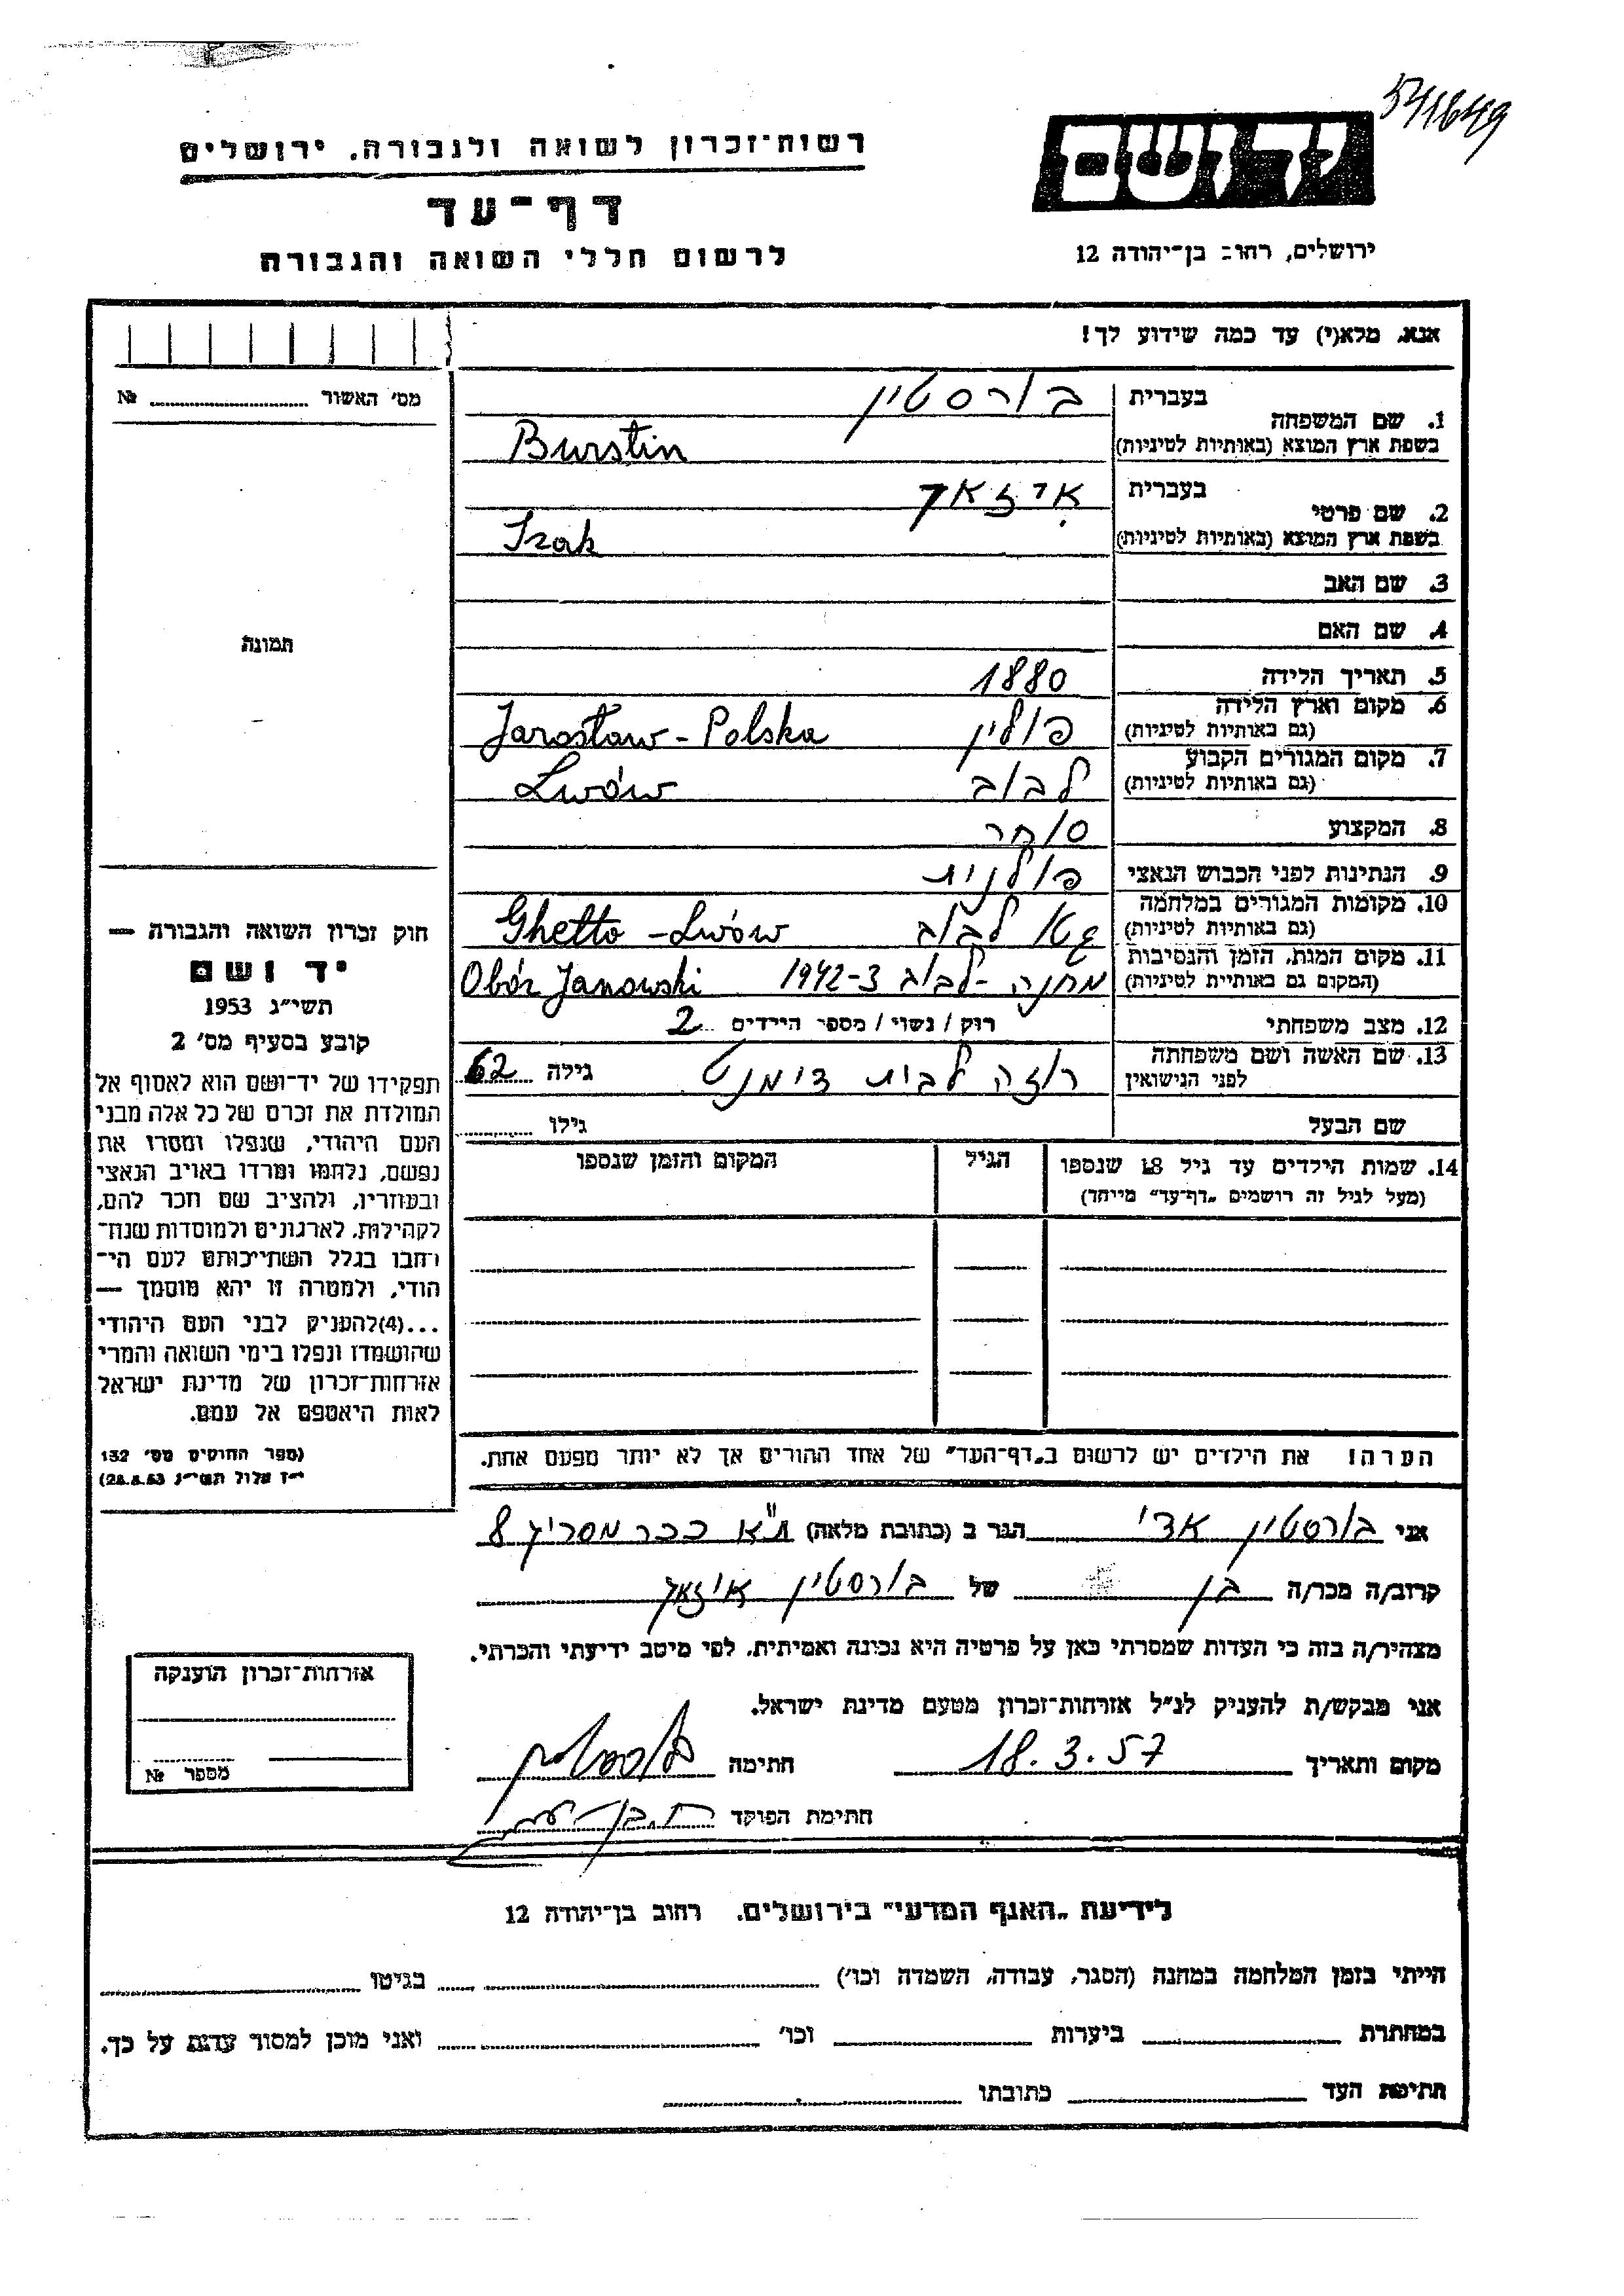 541649
רשות־זכרון לשואה ולגבורה. ירושלים
יד ושם
דף־עד
לרשום חללי השואה והגבורה
ירושלים, רחוב בן־יהודה 12
אנא, מלא(י) עד כמה שידוע לך!
מס' האשור № 
1. שם המשפחה בעברית בורסטין
בשפת ארץ המוצא (באותיות לטיניות) Burstin
2. שם פרטי בעברית איזאק
בשפת ארץ המוצא (באותיות לטיניות) Izak
3. שם האב
4. שם האם
תמונה
5. תאריך הלידה 1880
6. מקום וארץ הלידה (גם באותיות לטיניות) פולין Jarosław - Polska
7. מקום המגורים הקבוע (גם באותיות לטיניות) לבוב Lwów
8. המקצוע סוחר
9. הנתינות לפני הכבוש הנאצי פולנית
10. מקומות המגורים במלחמה (גם באותיות לטיניות) גטו לבוב Ghetto - Lwów
11. מקום המות, הזמן והנסיבות (המקום גם באותיות לטיניות) מחנה - לבוב 1942-3 Obóz Janowski
12. מצב משפחתי רוק / נשוי / מספר הילדים 2
13. שם האשה ושם משפחתה לפני הנישואין רוזה לבית דימנט גילה 62
שם הבעל גילו
14. שמות הילדים עד גיל 18 שנספו הגיל המקום והזמן שנספו
(מעל לגיל זה רושמים "דף־עד" מייחד)
חוק זכרון השואה והגבורה —
יד ושם
תשי"ג 1953
קובע בסעיף מס' 2
תפקידו של יד־ושם הוא לאסוף אל
המולדת את זכרם של כל אלה מבני
העם היהודי, שנפלו ומסרו את
נפשם, נלחמו ומרדו באויב הנאצי
ובעוזריו, ולהציב שם וזכר להם,
לקהילות, לארגונים ולמוסדות שנח־
רבו בגלל השתייכותם לעם הי־
הודי, ולמטרה זו יהא מוסמך —
...(4)להעניק לבני העם היהודי
שהושמדו ונפלו בימי השואה והמרי
אזרחות־זכרון של מדינת ישראל
לאות היאספם אל עמם.
(ספר החוקים מס' 132
י"ז אלול תשי"ג 28.8.53)
הערה! את הילדים יש לרשום ב"דף־העד" של אחד ההורים אך לא יותר מפעם אחת.
אני בורסטין אדי הגר ב (כתובת מלאה) ת"א ככר מסריק 8
קרוב/ה מכר/ה בן של בורסטין איזאק
מצהיר/ה בזה כי העדות שמסרתי כאן על פרטיה היא נכונה ואמיתית, לפי מיטב ידיעתי והכרתי.
אני מבקש/ת להעניק לנ"ל אזרחות־זכרון מטעם מדינת ישראל.
מקום ותאריך 18.3.57 חתימה בורסטין
חתימת הפוקד
אזרחות־זכרון הוענקה
מספר №
לידיעת "האגף המדעי" בירושלים. רחוב בן־יהודה 12
הייתי בזמן המלחמה במחנה (הסגר, עבודה, השמדה וכו') בגיטו
במחתרת ביערות וכו' ואני מוכן למסור עדות על כך.
חתימת העד כתובתו